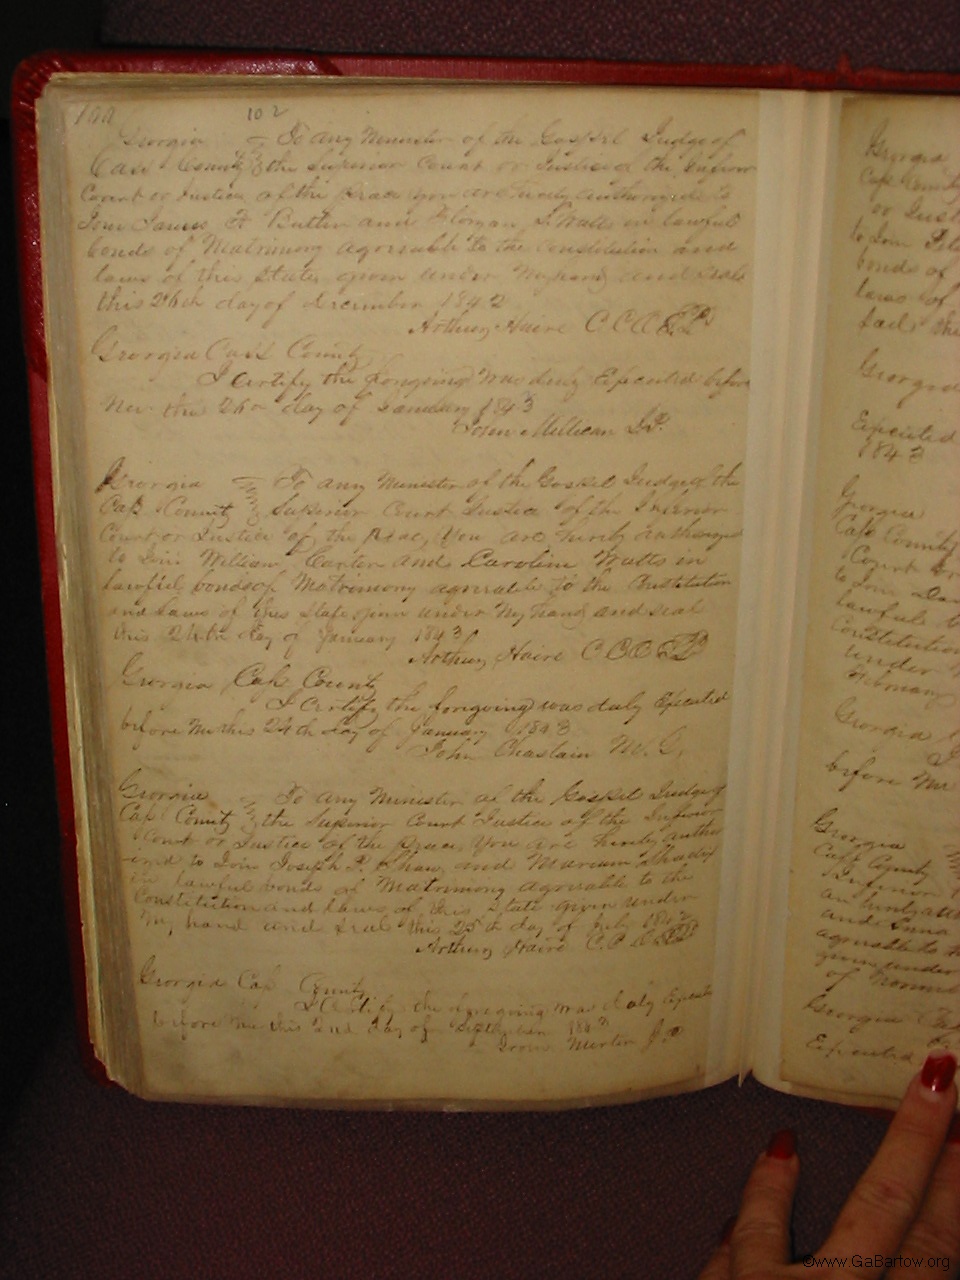 100 102
Georgia To any Minister of the Gospel Judge of
Cass County the Superior Court or Justice of the Inferior
Court or Justice of the Peace you are hereby authorized to
Join James H Butler and L Watts in lawful
bonds of Matrimony agreeable to the Constitution and
laws of this State given under My hand and Seale
this 26th day of december 1842
Arthur Haire C C O
Georgia Cass County
I Certify the foregoing was duly Executed before
me the 26th day of January 1843
John Millican J.P.
Georgia To any Minister of the Gospel Judge of the
Cass County Superior Court Justice of the Inferior
Court or Justice of the Peac, You are hereby authorized
to Join William Carter and Caroline Watts in
lawful bonds of Matrimony agreeable to the Constitution
and Laws of this State given under My hand and seal
this day of January 1843
Arthur Haire C C O
Georgia Cass County
I Certify the foregoing was duly Executed
before Me this 24th day of January 1843
John Chastain M. G.
Georgia To any Minister of the Gospel Judge of
Cass County the Superior Court Justice of the Inferior
Court or Justice of the Peace, You are hereby author
ized to Join Joseph P. Shaw and
in lawful bonds of Matrimony agreeable to the
Constitution and Laws of this State given under
My hand and Seal this 25th day of July
Arthur Haire C. C. O
Georgia Cass County
I Certify the foregoing was duly Execute
before me this 2nd day of September 1843
Martin J.P.
Georgia
Cass County
or Just
to Join
bonds of
laws of
Seal this
Georgia
Executed
1843
Georgia
Cass County
Court or
to Join
lawfull b
Constitution
under
February
Georgia
before Me
Georgia
Cass County
Inferior
and
agreeable to
given under
of
Georgia Cass
Executed
©www.GaBartow.org